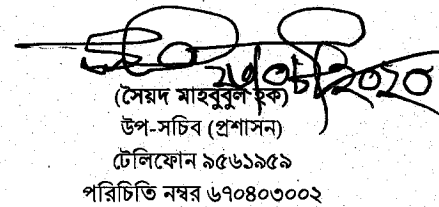 (সৈয়দ মাহবুবুল হক)
উপ-সচিব (প্রশাসন)
টেলিফোন ৯৫৬১৯৫৯
পরিচিতি নম্বর ৬৭০৪০৩০০২